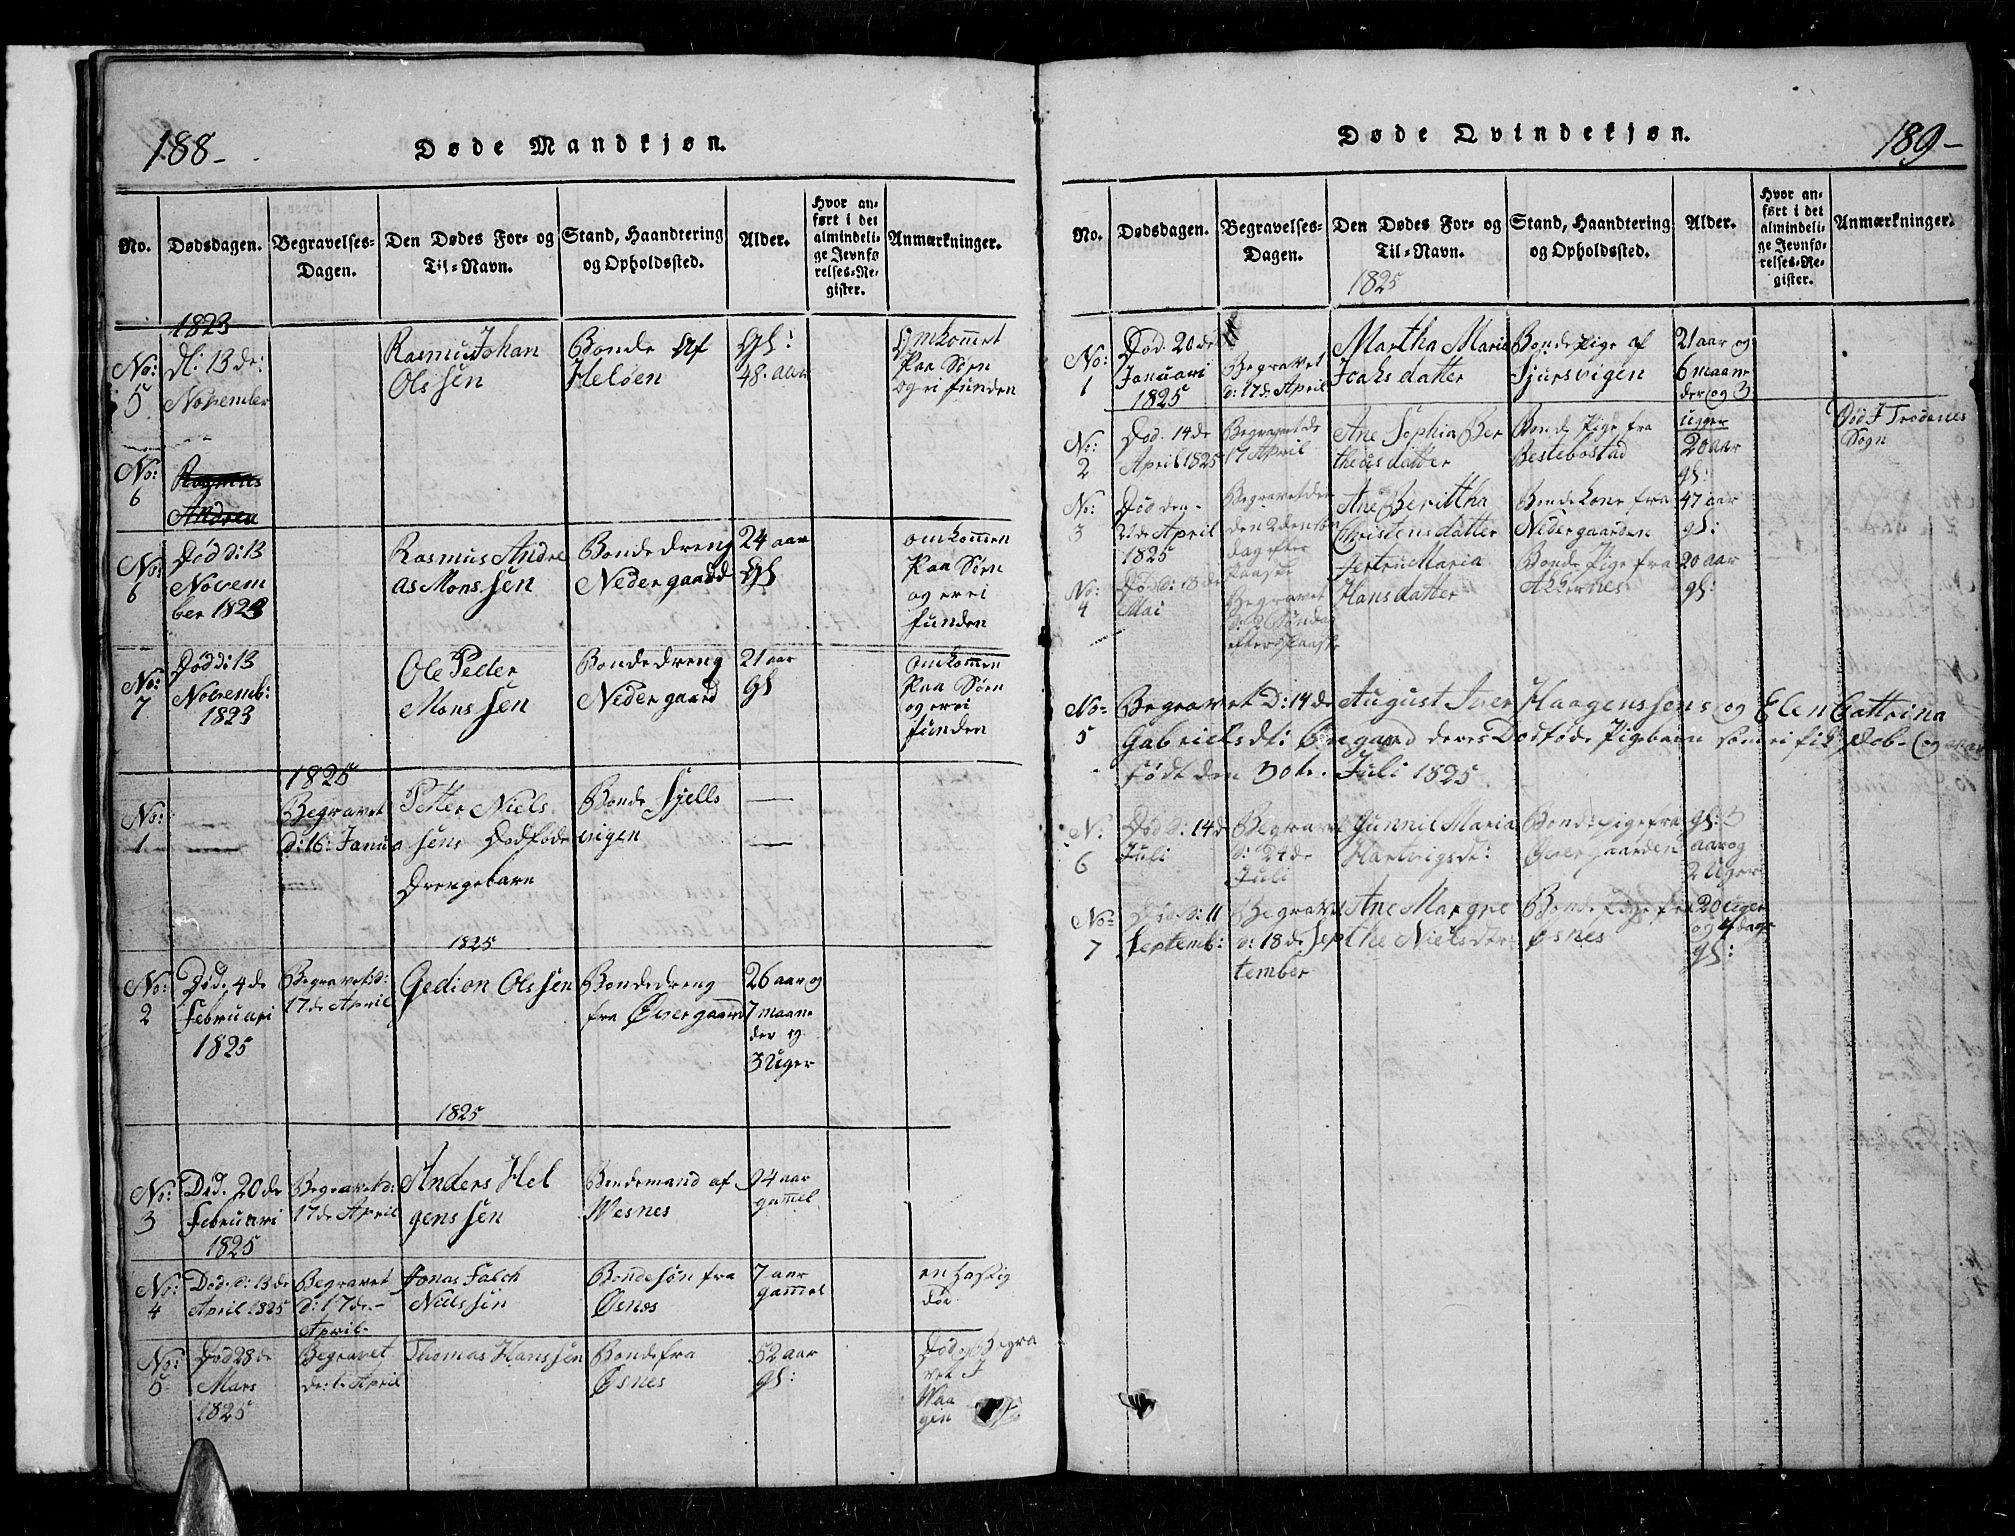 188-
Døde Mandkjøn.
No.
Dødsdagen.
Begravelses-
Dagen.
Den Dødes For- og
Til-Navn.
Stand, Haandtering
og Opholdssted.
Alder.
Hvor an-
ført i det
almindeli-
ge Jevnfø-
relses-Re-
gister.
Anmærkninger.
1823
No:
5
Dl: 13 de:
November
Rasmus Johan
Olssen
Bonde Af
Heløen
Gl:
48. aar
Omkommet
Paa Søen
og ei funden
No:
6
Rasmus
Andrea
No:
6
Død d: 13
Novem
ber 1823
Rasmus Andre
as Monssen
Bondedreng
Nedergaard
24 aar
Gl
omkommen
Paa Søen
og er ei
funden
No:
7
Død d: 13
Novemb:
1823
Ole Peder
Monssen
Bondedreng
Nedergaard
21 aar
Gl
omkommen
Paa Søen
og er ei
funden
1825
No:
1
Begravet
d: 16: Janua
Petter Niels
sens Dødføde
Drengebarn
Bonde Fjells
vigen
1825
No:
2
Død. 4 de
Februari
1825
Begravet d:
17 de April
Gedion Olssen
Bondedreng
fra Øvergaard
26 aar og
7 maane
der og
3 Uger
1825
No:
3
Død. 20 de
Februari
1825
Begravet d:
17 de April
Anders Hel
genssen
Bondemand af
Wesnes
94 aar
gammel
No:
4
Død. d: 13 de
April 1825
Begravet
d: 17 de-
April-
Jonas Falch
Nielssen
Bondesøn fra
Øsnes
7 aar
gammel
en hastig
død.
No:
5
Død 28 de
Mars
1825
Begravet
de: 1. April
Thomas Hanssen
Bonde fra
Øsnes
52 aar
gl:
Død og Begra
vet I
Waa
gen
189-
Døde Qvindekjøn.
No.
Dødsdagen.
Begravelses-
Dagen.
Den Dødes For- og
Til-Navn.
1825
Stand, Haandtering
og Opholdssted.
Alder.
Hvor an-
ført i det
almindeli-
ge Jevnfø-
relses-Re-
gister.
Anmærkninger.
No:
1
Død. 20 de
Januari
1825
Begravet
d: 17 de April
Martha Maria
Isaks datter
Bonde Pige af
Sjursvigen
21 aar og
6 maane
der og 3
uger
No:
2
Død. 14 de
April 1825
Begravet de
17 April
Ane Sophia Ber
theus datter
Bonde Pige fra
Bessebostad
20 aar
gl:
Død I Trodenes
Sogn
No:
3
Død den-
21 de April
1825
Begravet den
den 2den
dag efter
Paaske
Ane Berittha
Christensdatter
Bonde Kone fra
Nedergaarden
47 aar
gl:
No:
4
Død d: 18 de
Mai
Begravet
d: 2 Søndag
efter Paaske
Maria
Hans datter
Bonde Pige fra
20 aar
gl:
No-
5
Begravet d: 14 de August Iver Haagenssens og Elen Cattrina
Gabrielsdt: Øvegaard deres Dødføde Pigebarn som ei fik Daab. (og var
født den 30 te. Juli 1825
N:
6
Død d: 14 d
Juli
Begravet
d: 24 de
Juli
Gunnil Maria
Hartvigsdt:
Bonde pige fra
Øvergaarden
gl: 3
aar og
2 Uger
No-
7
Død d: 11
Septemb:
Begravet
d: 18 de Sep
tember
Ane Margre
the Nielsdtr:
Bonde pige fra
Øsnes
20 uger
og 4 dage
gl: